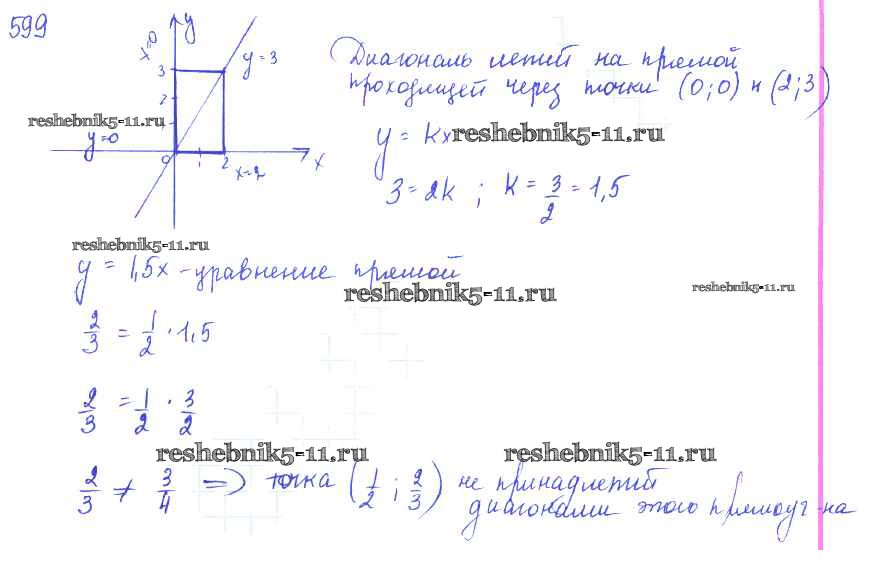 599
y
x=0
3
y=3
2
1
y=0
0
1
2
x
x=2
Диагональ лежит на прямой
проходящей через точки (0;0) и (2;3)
y = kx
3=2k ; k = 3/2 = 1,5
y = 1,5x - уравнение прямой
2/3 = 1/2 · 1,5
2/3 = 1/2 · 3/2
2/3 ≠ 3/4 => точка (1/2 ; 2/3) не принадлежит
диагонали этого прямоуг-на
reshebnik5-11.ru
reshebnik5-11.ru
reshebnik5-11.ru
reshebnik5-11.ru
reshebnik5-11.ru
reshebnik5-11.ru
reshebnik5-11.ru